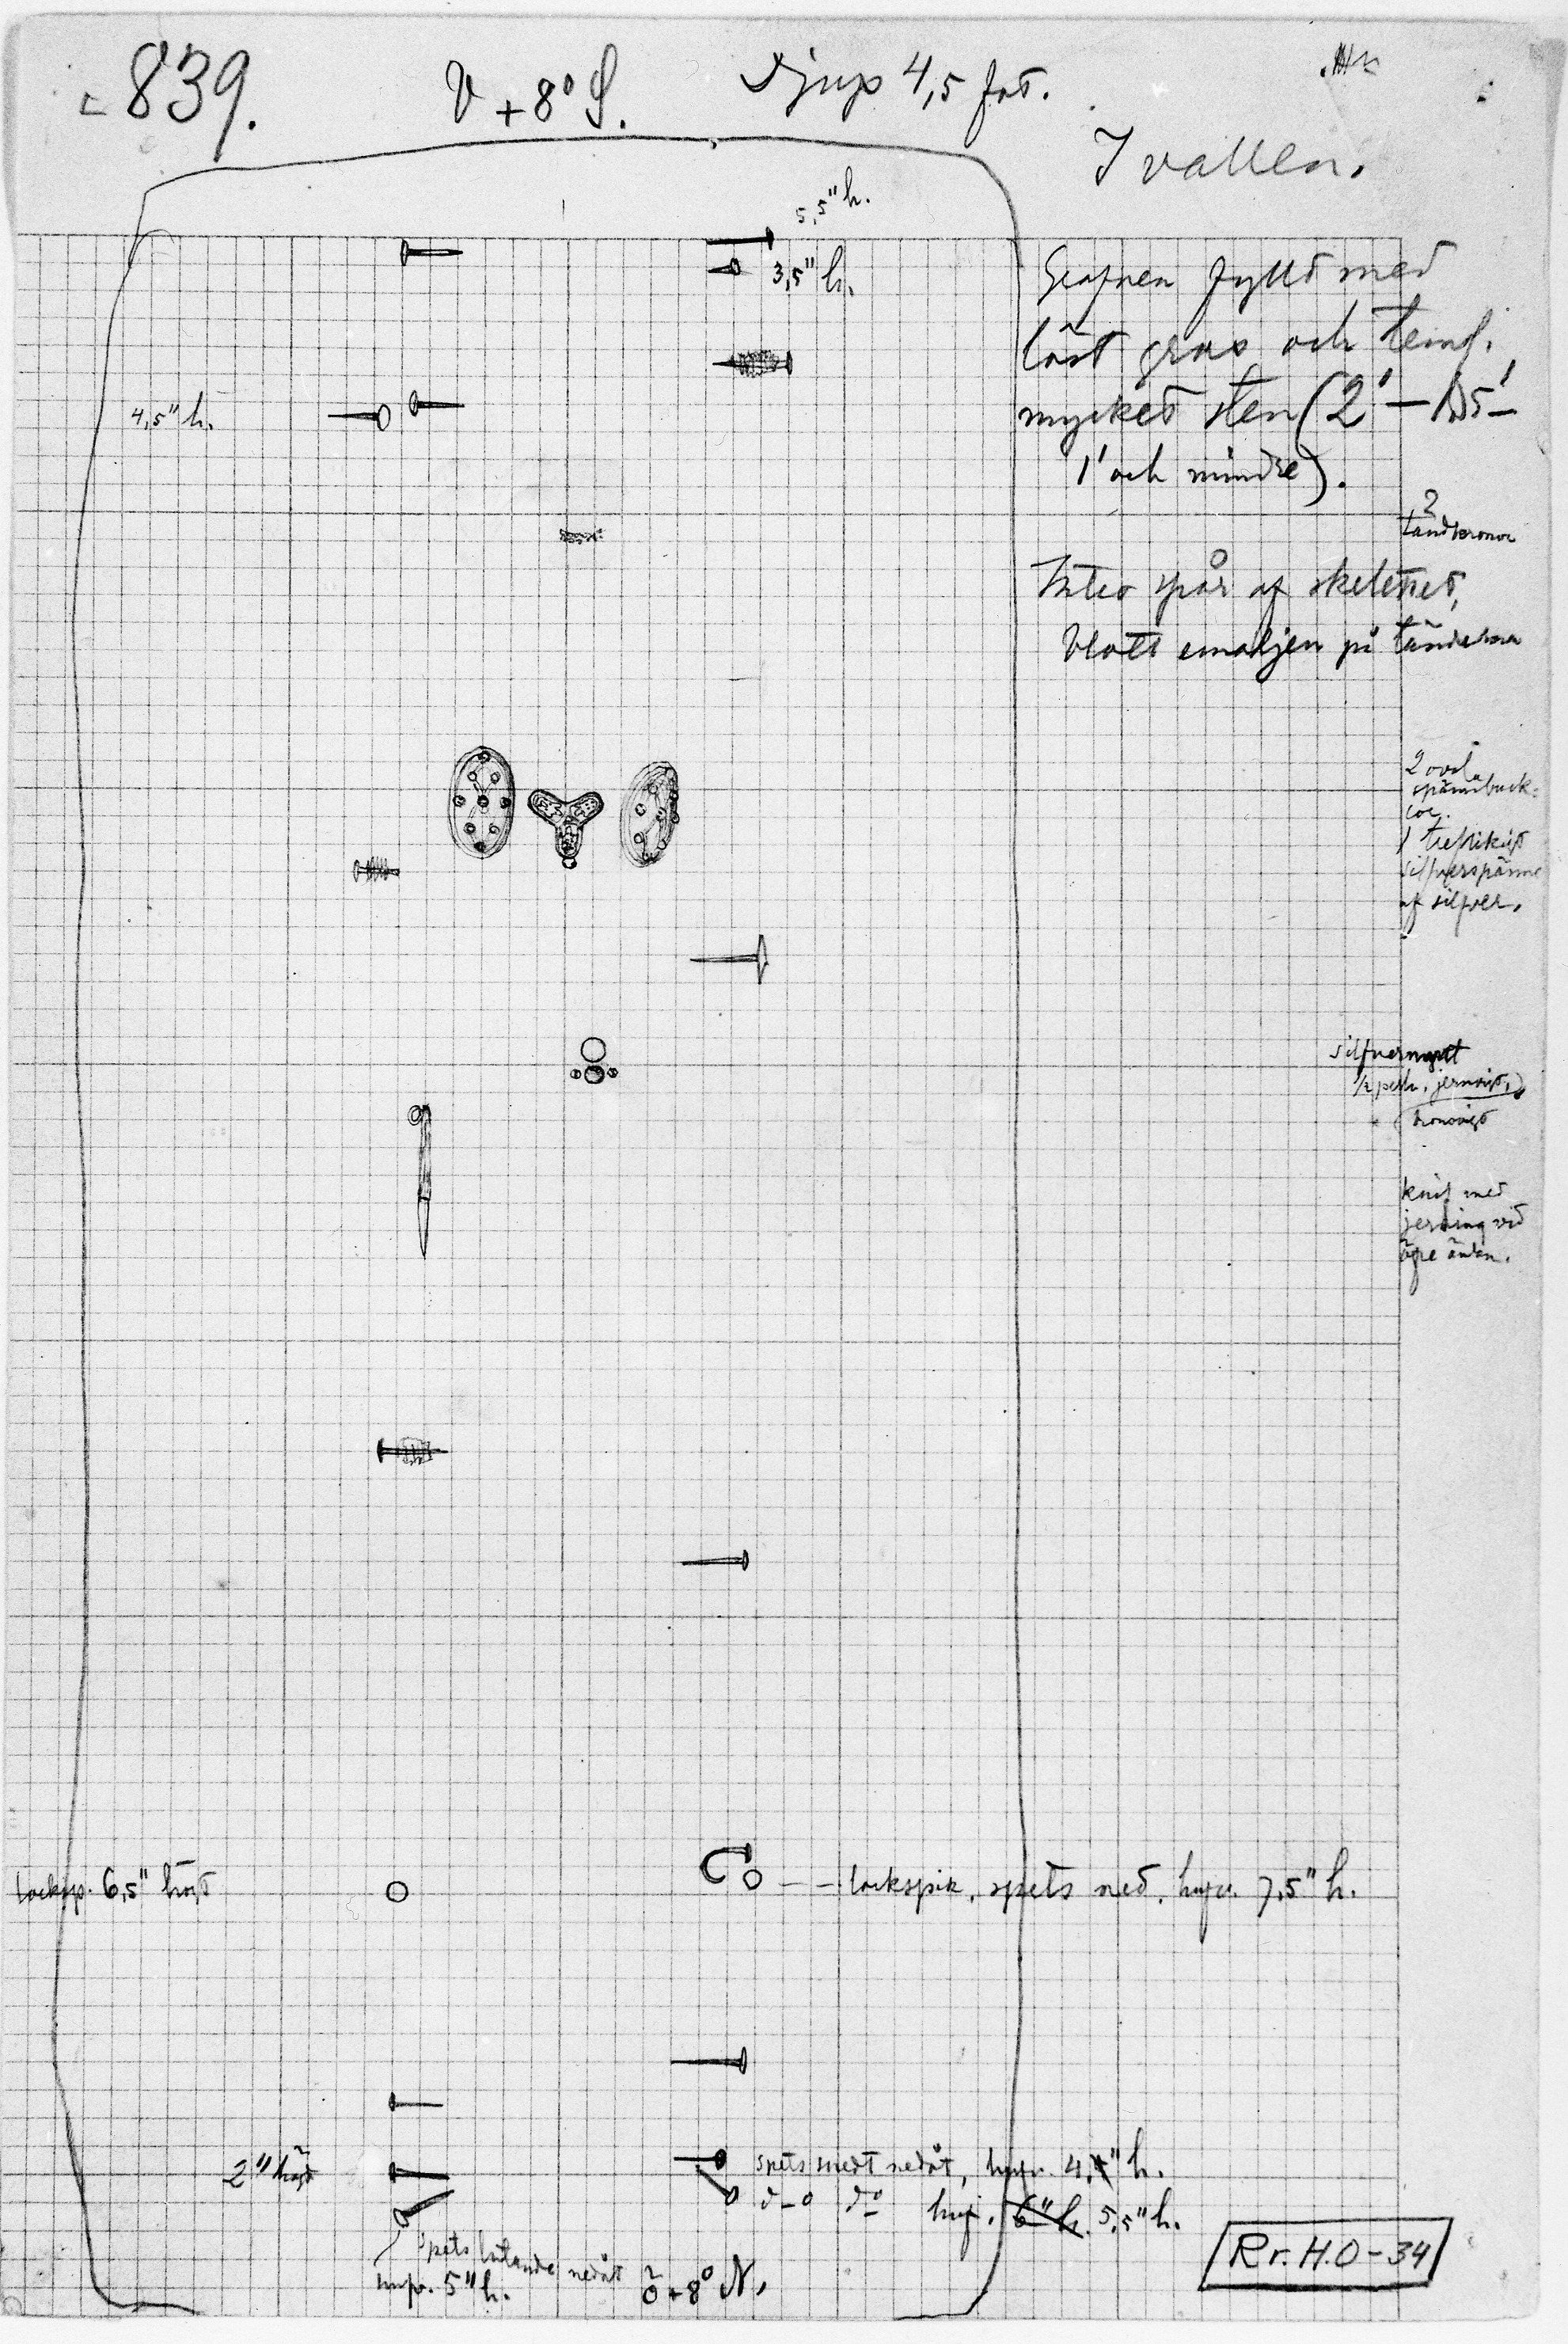 839.
V + 8° S.
Djup 4,5 fot.
I vallen.
5,5" h.
3,5" h.
4,5" h.
Grafven fylld med
löst grus och teml.
mycket sten (2' – 1,5' –
1' och mindre).
2
tandkronor
Intet spår af skelettet,
blott emaljen på tänderna
2 ovala
spännbuck-
lor.
1 treflikigt
silfverspänne
af silfver.
silfvermynt
½ perla, jernvigt,
bronsvigt
knif med
jernring vid
öfre ändan.
locksp. 6,5" högt
lockspik, spets ned, hufv. 7,5" h.
2" högt
spets snedt nedåt, hufv. 4, " h.
d–o d–o huf. 6" h. 5,5" h.
Spets lutande nedåt
hufv. 5" h.
Ö + 8° N.
Rr. H.O-34